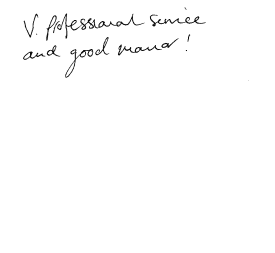 V. professional service
and good manor!